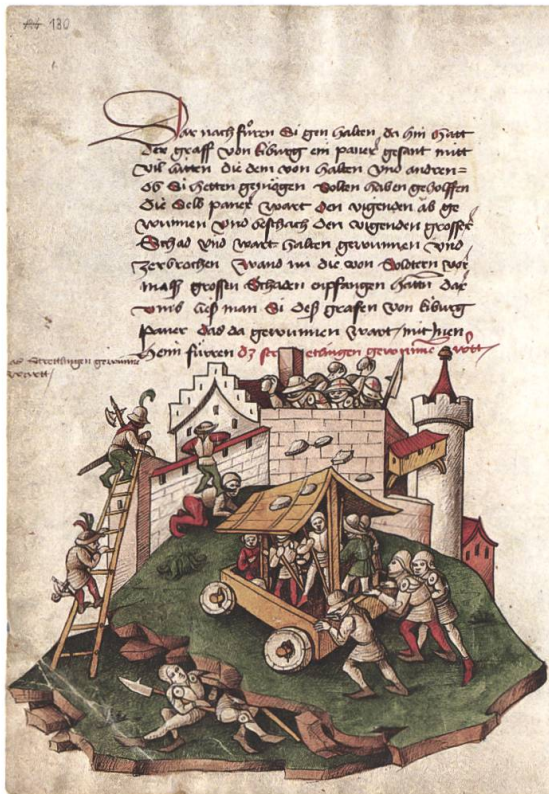 130
Dar nach fůren Si gen halten da hin hatt
der graff von kiburg ein paner gesant mitt
vil lütten die dem von halten vnd andren
ob Si hetten gemögen Solten haben geholffen
die Selb paner wart den vigenden ab ge
wunnen vnd beschach den vigenden grosser
Schad vnd wart halten gewunnen vnd
zerbrochen wand im die von Solotern vor
mals grossen Schaden enpfangen hattn dar
vmb lies man Si des grafen von kiburg
paner das da gewunnen wart mit Jnen
heim fürren dz stretlingen gewunne wart
as Strettlingen gewunne
wartt